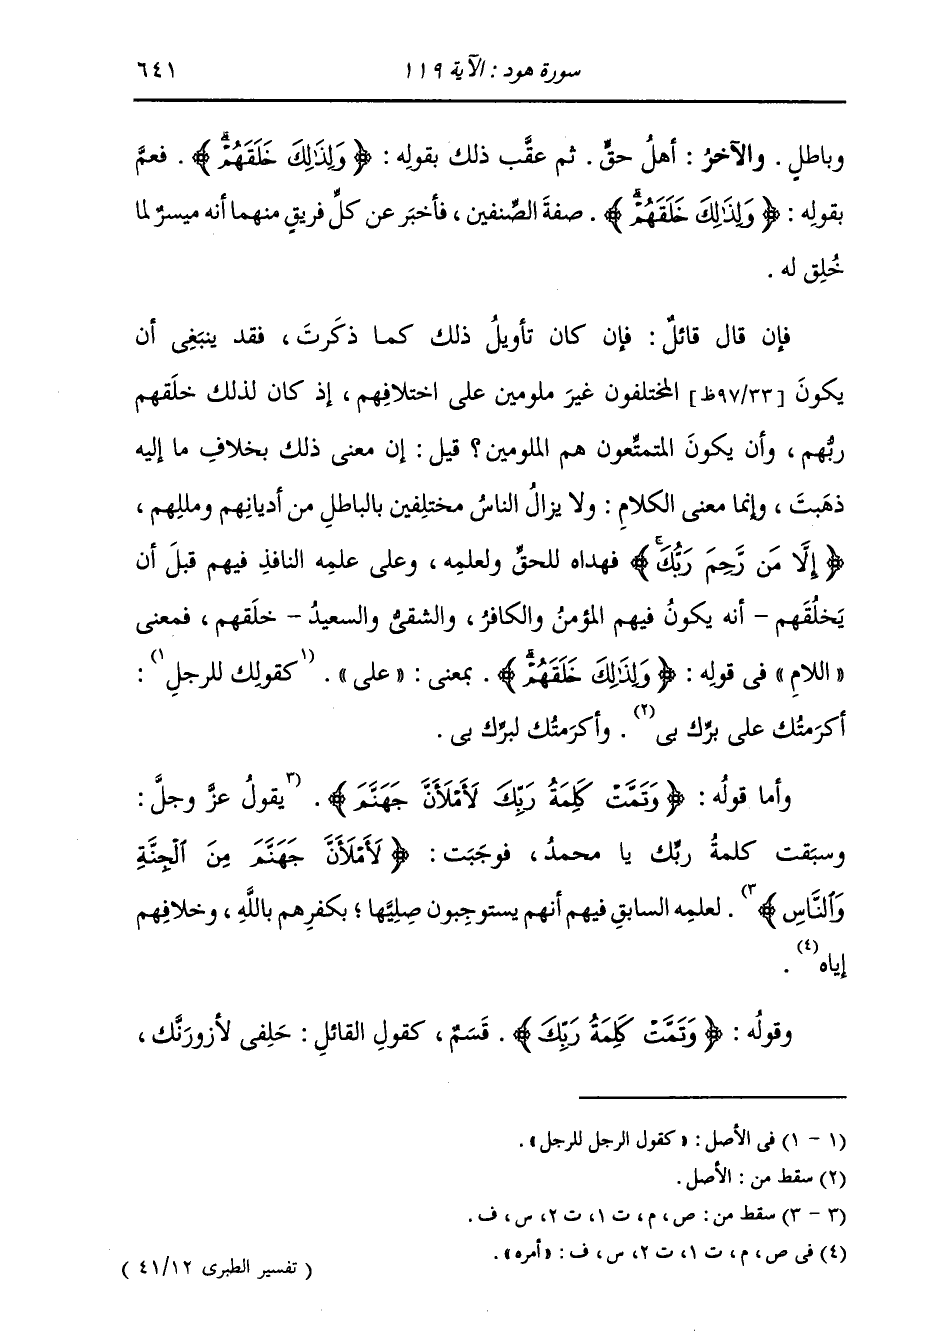 سورة هود : الآية ١١٩
٦٤١
وباطلٍ . والآخرُ : أهلُ حقٍّ . ثم عقَّب ذلك بقولِه : ﴿ وَلِذَٰلِكَ خَلَقَهُمْۗ ﴾ . فعمَّ
بقولِه : ﴿ وَلِذَٰلِكَ خَلَقَهُمْۗ ﴾ . صفةَ الصِّنفين ، فأخبَر عن كلِّ فريقٍ منهما أنه ميسرٌ لما
خُلِق له .
فإن قال قائلٌ : فإن كان تأويلُ ذلك كما ذكَرتَ ، فقد ينبَغِى أن
يكونَ [٩٧/٣٣ظ] المختلفون غيرَ ملومين على اختلافِهم ، إذ كان لذلك خلَقهم
ربُّهم ، وأن يكونَ المتمتِّعون هم الملومين ؟ قيل : إن معنى ذلك بخلافِ ما إليه
ذهَبتَ ، وإنما معنى الكلامِ : ولا يزالُ الناسُ مختلِفين بالباطلِ من أديانِهم ومللِهم ،
﴿ إِلَّا مَن رَّحِمَ رَبُّكَۚ ﴾ فهداه للحقِّ ولعلمِه ، وعلى علمِه النافذِ فيهم قبلَ أن
يَخلُقَهم – أنه يكونُ فيهم المؤمنُ والكافرُ ، والشقىُّ والسعيدُ – خلَقهم ، فمعنى
« اللامِ » فى قولِه : ﴿ وَلِذَٰلِكَ خَلَقَهُمْۗ ﴾ . بمعنى : « على » . (١كقولِك للرجلِ١) :
أكرَمتُك على برِّك بى(٢) . وأكرَمتُك لبرِّك بى .
وأما قولُه : ﴿ وَتَمَّتْ كَلِمَةُ رَبِّكَ لَأَمْلَأَنَّ جَهَنَّمَ ﴾ . (٣يقولُ عزَّ وجلَّ :
وسبَقت كلمةُ ربِّك يا محمدُ ، فوجَبَت : ﴿ لَأَمْلَأَنَّ جَهَنَّمَ مِنَ ٱلْجِنَّةِ
وَٱلنَّاسِ ﴾٣) . لعلمِه السابقِ فيهم أنهم يستوجِبون صِلِيَّها ؛ بكفرِهم باللَّهِ ، وخلافِهم
إياه(٤) .
وقولُه : ﴿ وَتَمَّتْ كَلِمَةُ رَبِّكَ ﴾ . قَسَمٌ ، كقولِ القائلِ : حَلِفى لأزورَنَّك ،
(١ – ١) فى الأصل : « كقول الرجل للرجل» .
(٢) سقط من : الأصل .
(٣ – ٣) سقط من : ص ، م ، ت ١، ت ٢، س ، ف .
(٤) فى ص ، م ، ت ١، ت ٢، س ، ف : «أمره» .
( تفسير الطبرى ٤١/١٢ )